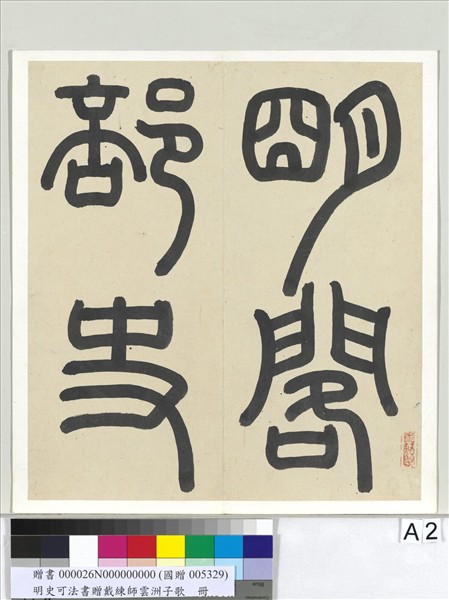 明閣
部史
A2
贈書 000026N000000000 (國贈 005329)
明史可法書贈戴練師雲洲子歌 冊